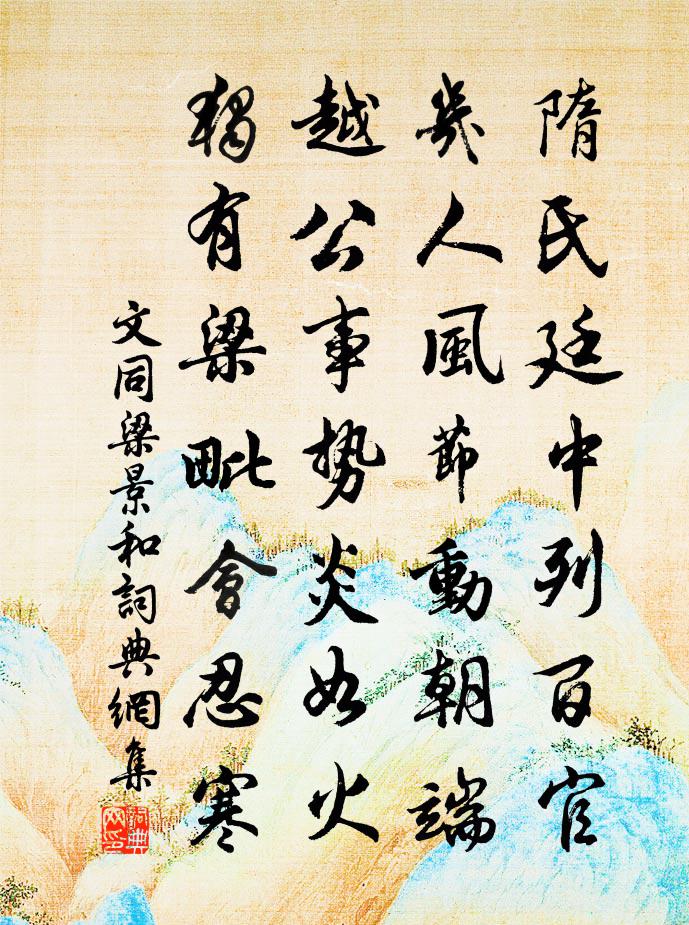 隋氏廷中列百官
幾人風節動朝端
越公事勢炎如火
獨有梁毗會忍寒
文同梁景和詞典網集
詞典网印